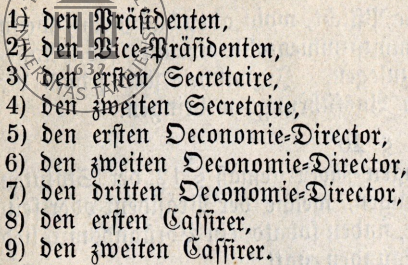 1) den Präsidenten,
2) den Vice-Präsidenten,
3) den ersten Secretaire,
4) den zweiten Secretaire,
5) den ersten Oeconomie-Director,
6) den zweiten Oeconomie-Director,
7) den dritten Oeconomie-Director,
8) den ersten Cassirer,
9) den zweiten Cassirer.
1632